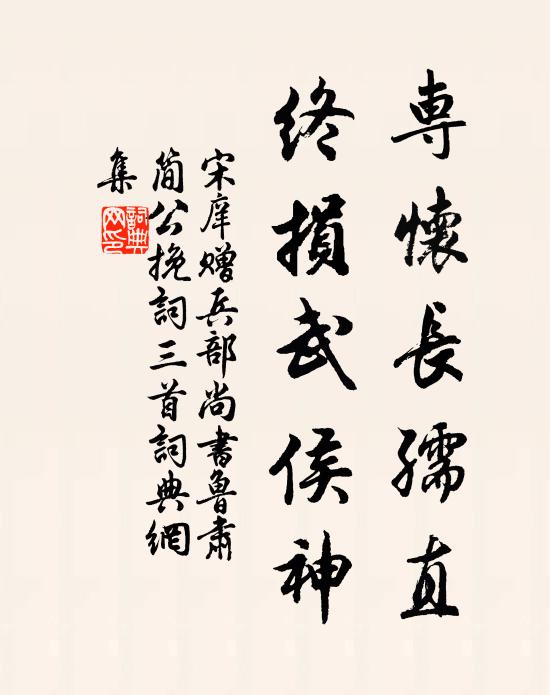 専懷長孺直
終損武侯神
宋庠贈兵部尚書魯肅
簡公挽詞三首詞典網
集
詞典網印